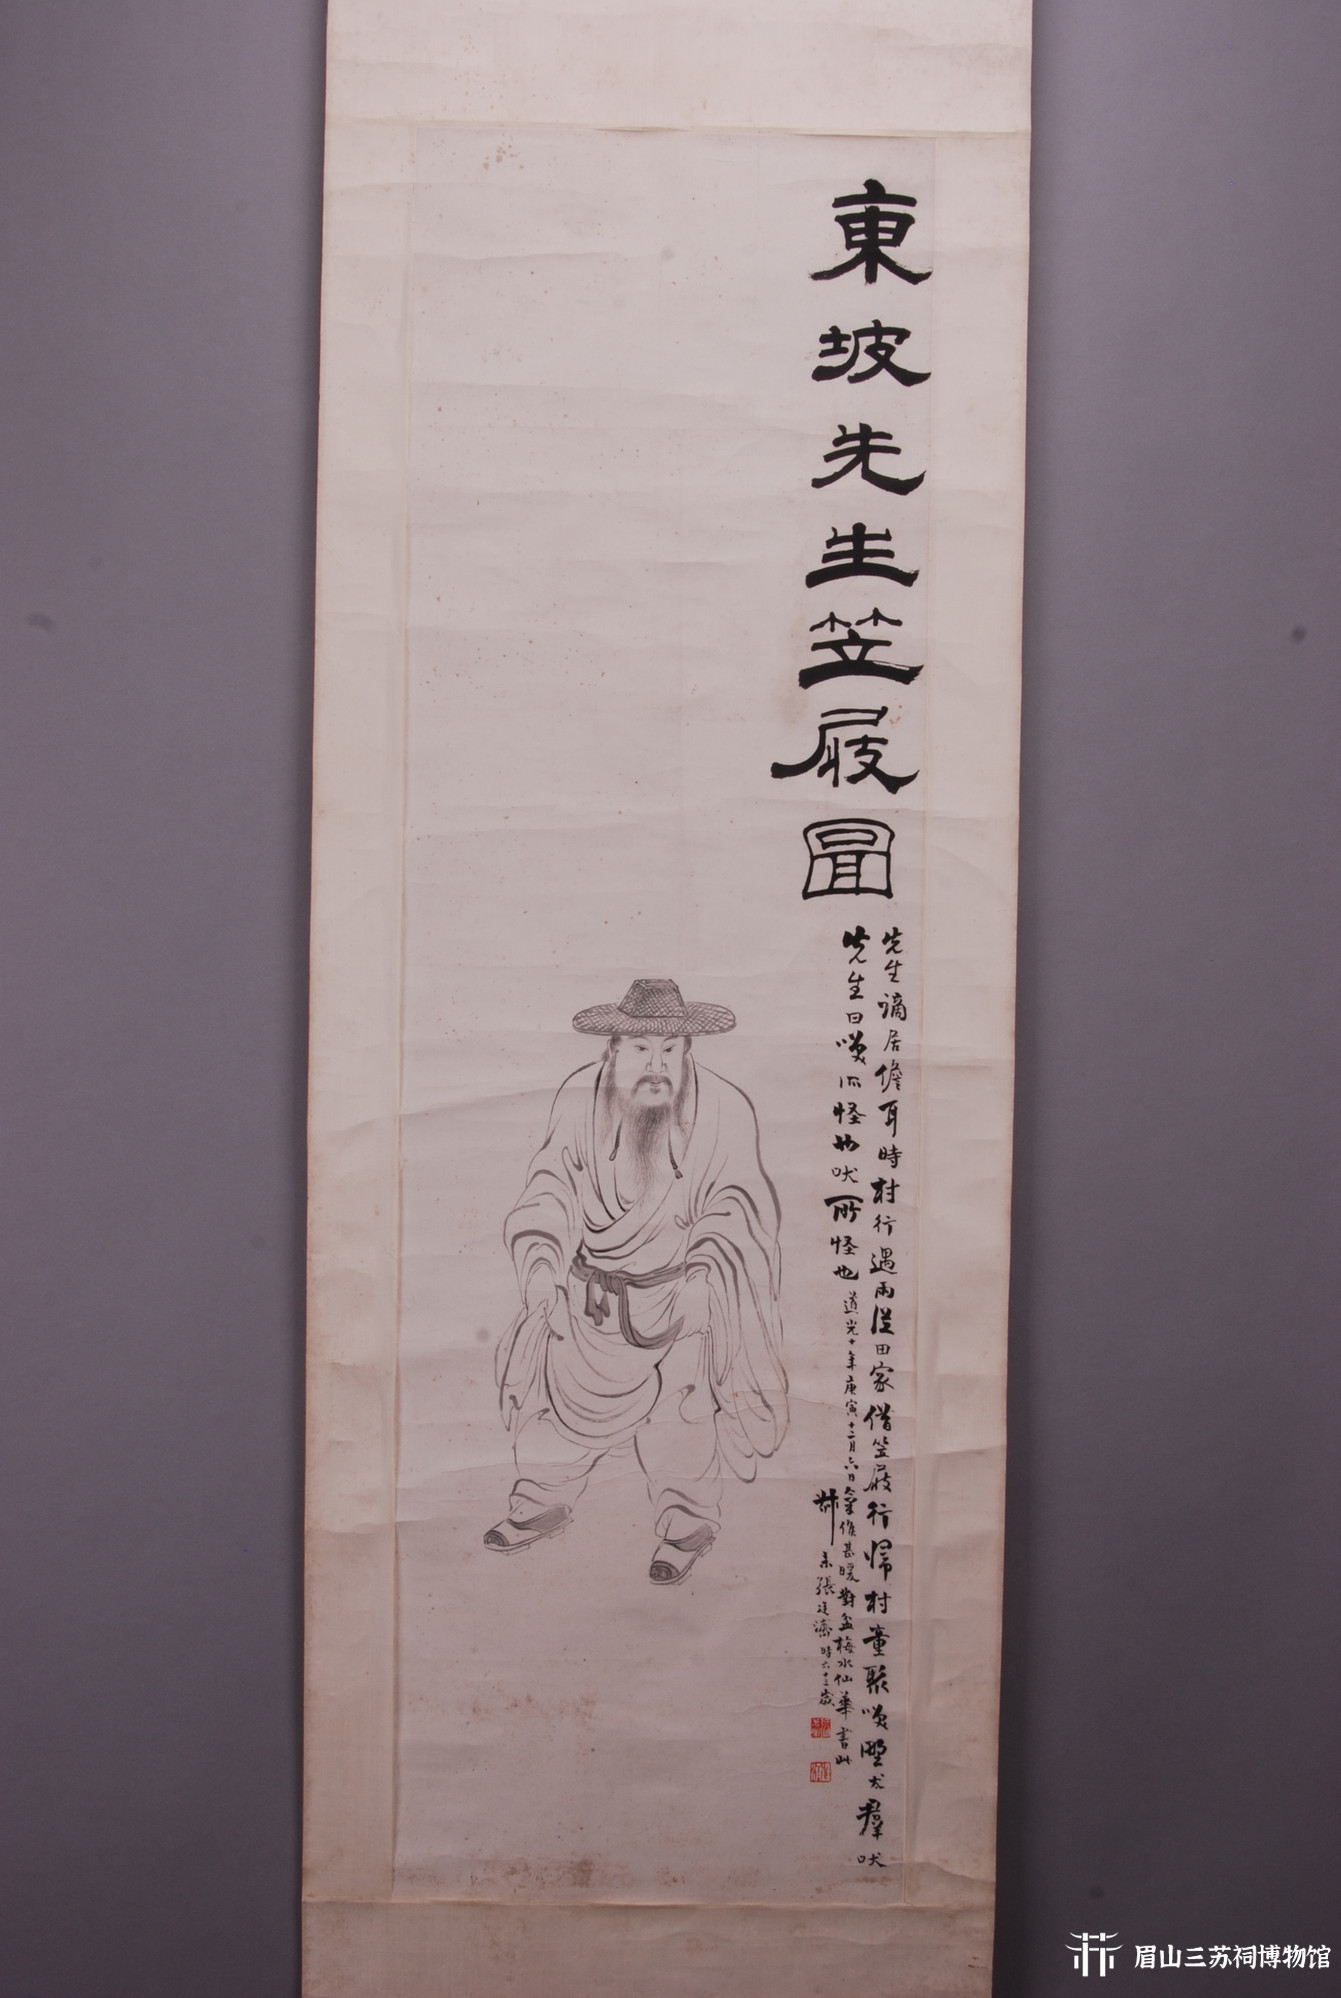 東坡先生笠屐圖
先生謫居儋耳時村行遇雨從田家借笠屐行歸村童聚唉野犬羣吠
先生曰唉所怪也吠所怪也道光十年庚寅十二月六日氣候甚暖對盆梅水仙華書此
叔未張廷濟時六十三歲
眉山三苏祠博物馆